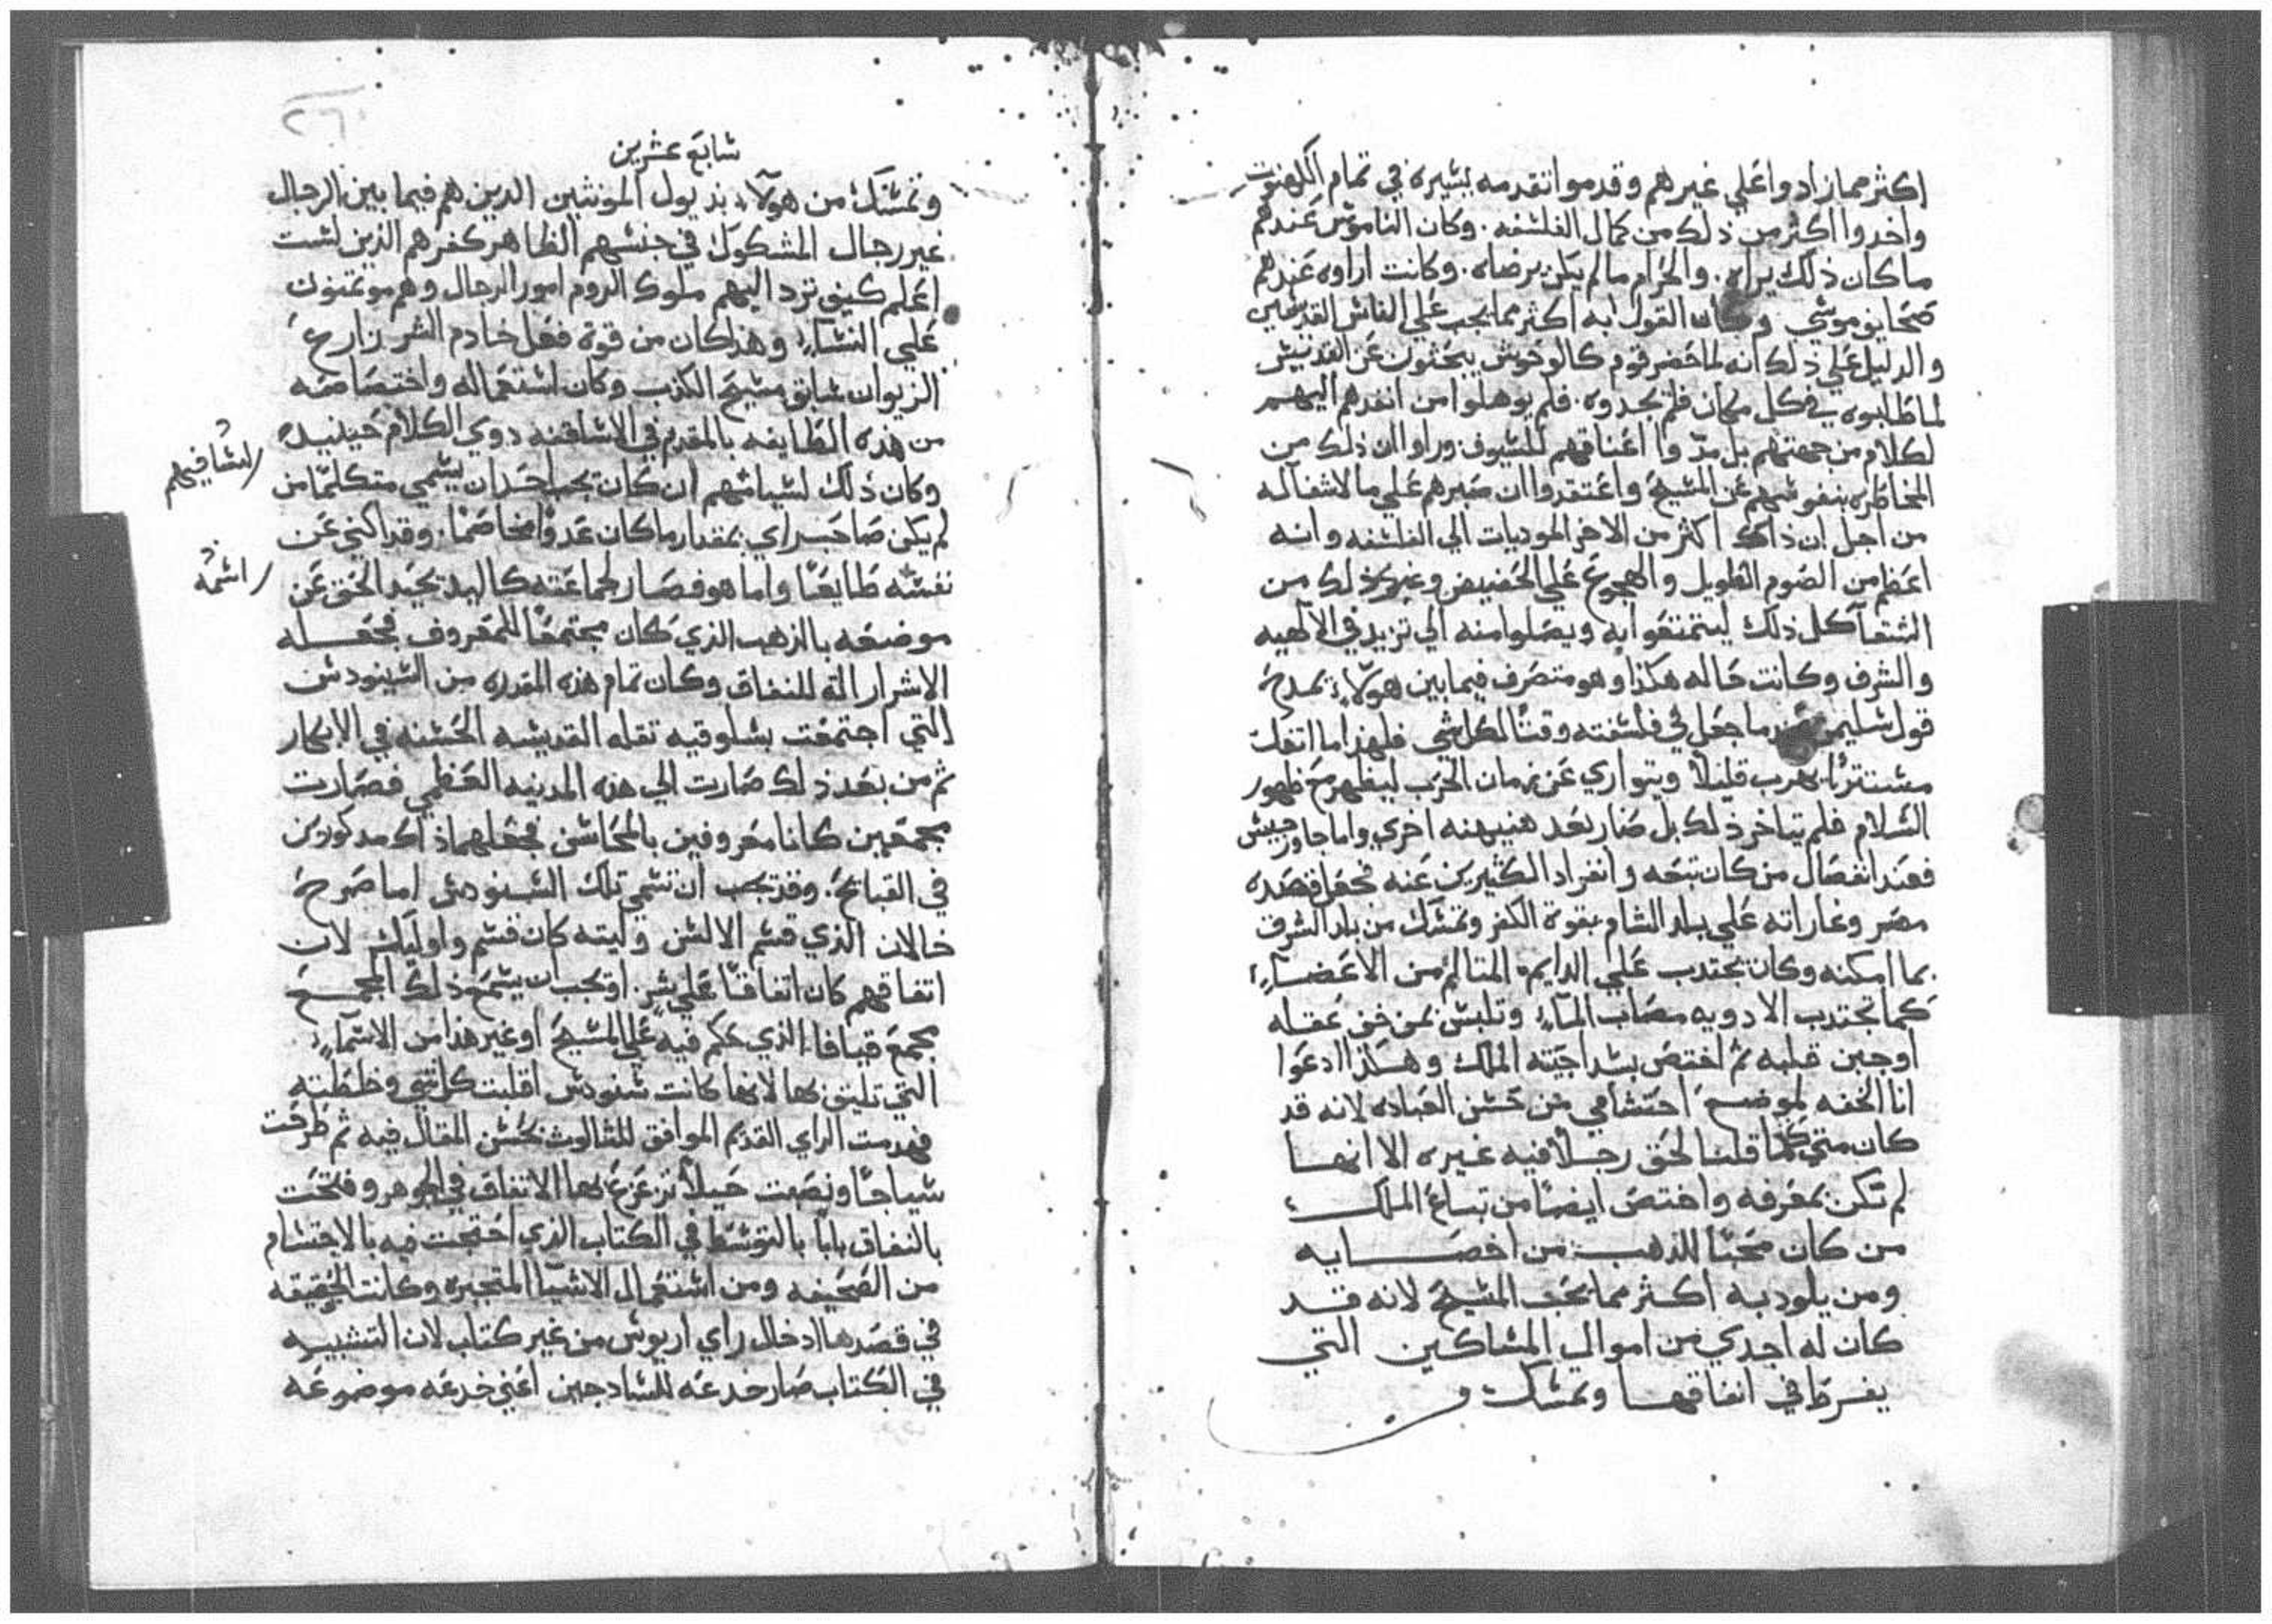 اكثر مما زادوا علي غيرهم وقدموا تقدمه يسيره في تمام الكهنوت
واخدوا اكثر من ذلك من كمال الفلسفه . وكان الناموس عندهم
ماكان ذلك يراه . والحرام مالم يكن برضاه . وكانت اراوه عندهم
صحايف موسي وكان القول به اكثر مما يجب علي الناس القديسين
والدليل علي ذلك انه لما حضر قوم كالوحوش يبحثون عن القديس
لما طلبوه في كل مكان فلم يجدوه . فلم يوهلوا من انفدهم اليهم
لكلام من جهتهم بل مدوا اعناقهم للسيوف وراوا ان ذلك من
المخاطره بنفوسهم عن المسيح واعتقدوا ان صبرهم علي مالاشغاله
من اجل ان ذاك اكثر من الاخر الموديات الي الفلسفه وانه
اعظم من الصوم الطويل والهجوع علي الحضيض وغير ذلك من
الشقا كل ذلك ليتمتعوا به ويصلوا منه الي تزيد في الالهيه
والشرف وكانت حاله هكذا وهو متصرف فيما بين هولاء يمدح
قول سليمن ما جعل في فلسفته وقتا لكل شي فلهذا ما اتفلت
مستترا يهرب قليلا ويتواري عن زمان الحرب ليظهر مع ظهور
السلام فلم يتاخر ذلك بل صار بعد هنيهه اخري واما جاورجيس
فعند انفصال من كان تبعه وانفراد الكثيرين عنه فجعل قصده
مصر وغاراته علي بلد الشام بقوة الكفر وتمسك من بلد الشرق
بما امكنه وكان يجتدب علي الدايم المتالم من الاعضاء
كما تجتدب الادويه مصاب الماء وتلبس بمن خف عقله
اوجبن قلبه ثم اختص بسداجته الملك وهكذا ادعوا
انا الخفه لموضع احتشامي من حسن العباده لانه قد
كان متي كلما قلنا لحق رجلا فيه غيره الا انها
لم تكن بمعرفه واختص ايضا من تباع الملك
من كان محبا للذهب من اخصايه
ومن يلود به اكثر مما يحب المسيح لانه قد
كان له اجدي من اموال المساكين التي
يفرط في انفاقها وتمسك و
سابع عشرين
وتمسك من هولاء بديول المونثين الدين هم فيما بين الرجال
غير رجال المشكوك في جنسهم الظاهر كفرهم الذين لست
اعلم كيف ترد اليهم ملوك الروم امور الرجال وهم موتمنون
علي النساء وهذا كان من قوة فعل خادم الشر زارع
الزيوان سابق مسيح الكدب وكان استعماله واختصاصه
من هذه الطايفه بالمقدم في الاساقفه دوي الكلام حينيد
وكان ذلك لسياستهم ان كان يجب احدان يسمي متكلما من
لم يكن صاحب راي بمقدار ماكان عدوا مخاصما . وقد اكني عن
نفسه طايعا واما هو فصار لجماعته كاليد تحيد الحق عن
موضعه بالذهب الذي كان مجتمعا للمعروف فجعله
الاشرار الة للنفاق وكان تمام هذه المقدره من السينودس
التي اجتمعت بسلوقيه تقله القديسه الحسنه في الابكار
ثم من بعد ذلك صارت الي هذه المدينه العظمي فصارت
مجمعين كانا معروفين بالمحاسن فجعلهما ذاك مدكورين
في القبايح . وقد تجب ان تسمي تلك السينودس اما صرح
خالان الذي قسم الالسن وليته كان قسم واوليك لان
اتفاقهم كان اتفاقا علي شر . او تجب ان يسمع ذلك المجمع
مجمع قيافا الذي حكم فيه علي المسيح او غير هذا من الاسماء
التي تليق بها لانها كانت سنودس اقلبت كل شي وخلطته
فهدمت الراي القديم الموافق للتالوث بحسن المقال فيه ثم طرقت
سياجا ونصبت حيلا تزعزع بها الاتفاق في الجوهر وفتحت
بالنفاق بابا بالتوسط في الكتاب الذي احتجت فيه بالاحتشام
من الصحيفه ومن استعمال الاشيا المتجبره وكانت الحقيقه
في قصدها ادخال راي اريوس من غير كتاب لان التشبيه
في الكتاب صار خدعه للسادجين اعني خدعه موضوعه
لسافيهم
اسمه